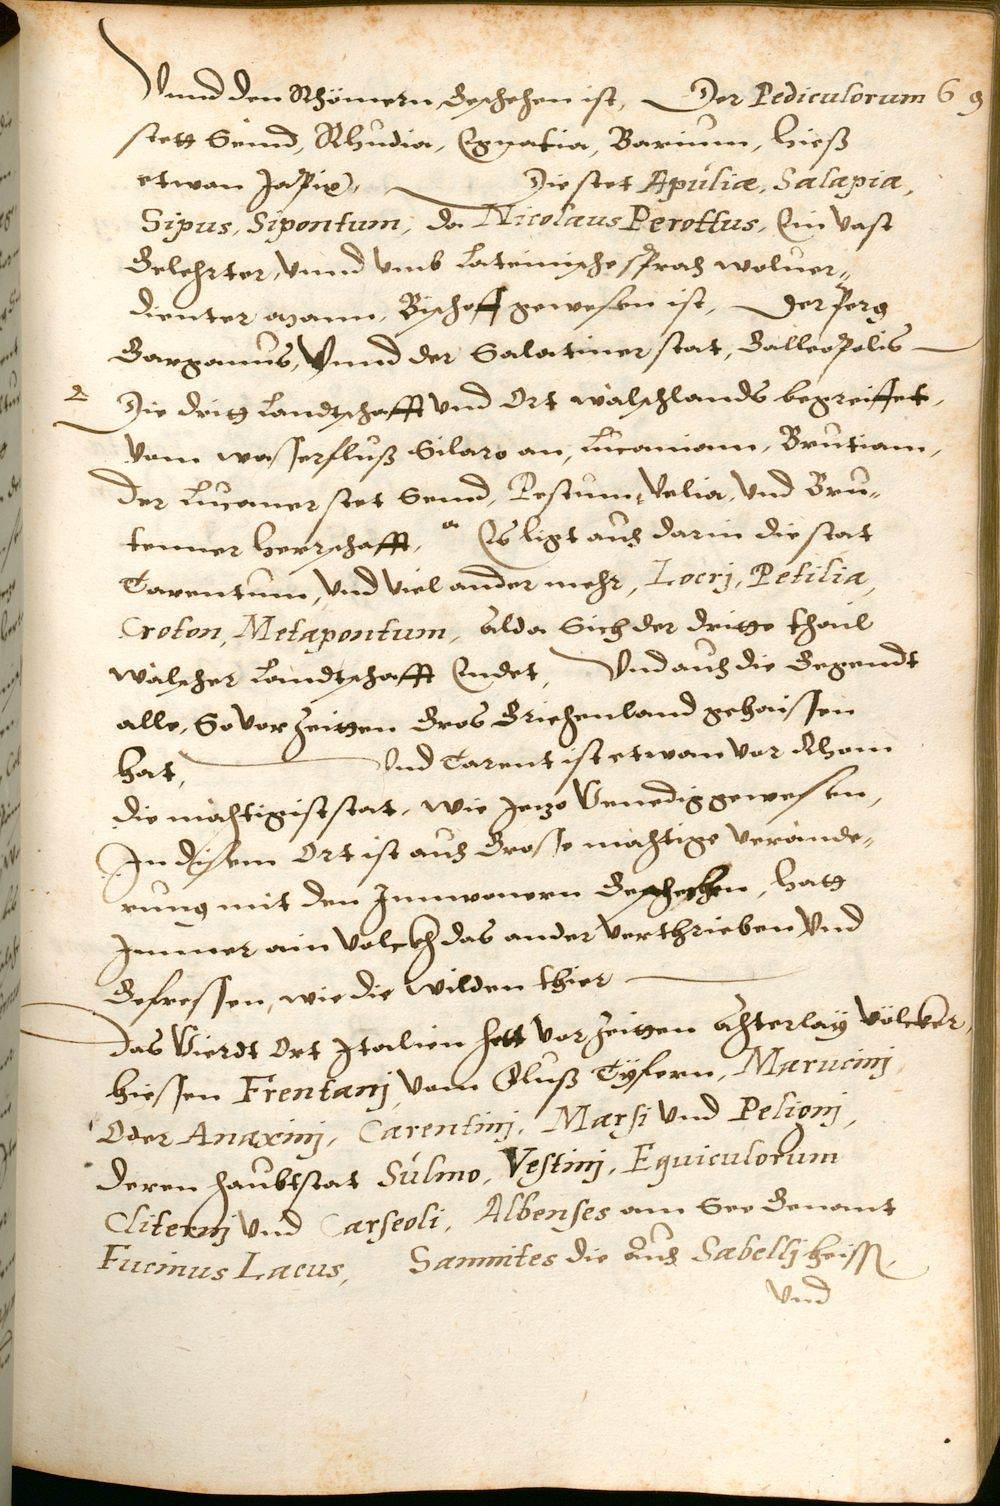 Vnnd den Rhömern geschehen ist, Der Pediculorum 69
stett Seind, Rhudia, Egnatia, Barium, hieß
etwan Japix, Die stet Apúliæ, Salapia,
Sipus, Sipontum, da Nicolaus Perottus, Ein vast
Gelehrter, vnnd vmb Lateinische sprach woluer-
dienter mann, Bischoff gewesen ist, Der perg
Garganus, Vnnd der Salatiner stat, Galleopolis
Die dritt Landtschafft vnd Ort wälschlands begreiffet,
Vom wasserfluß Silaro an, Lucaniam, Brutiam,
der Lucaner stet Send, Pestum, Velia, vnd Bru-
tenner herrschafft, Es ligt auch darin die stat
Tarentum, vnd viel ander mehr, Locrj, Petilia,
Croton, Metapontum, alda Sich der dritte thail
wälscher Landtschafft Endet, Vnd auch die Gegendt
alle, So vor zeitten Gros Griechenland gehaissen
hat, Vnd Tarent ist etwan vor Rhom
die mächtigist stat, wie Jezo Venedig gewesen,
In disem Ort ist auch Grosse mächtige verände-
rung mit den Innwonern Geschehen, hatt
Immer ain volckh das ander verthrieben vnd
Gefressen, wie die wilden thier
das Vierdt Ort Italien hett vor zeitten Achterlay völckher,
hiessen Frentanj, vom Fluß Tÿfern, Marucinj,
Oder Anaxinj, Carentinj, Marsi vnd Pelignj,
deren haubtstat Súlmo, Vestinj, Equiculorum
Cliternj vnd Carseoli, Albenses am See Genant
Fucinus Lacus, Samnites die Auch Sabellj heiss,
vnd